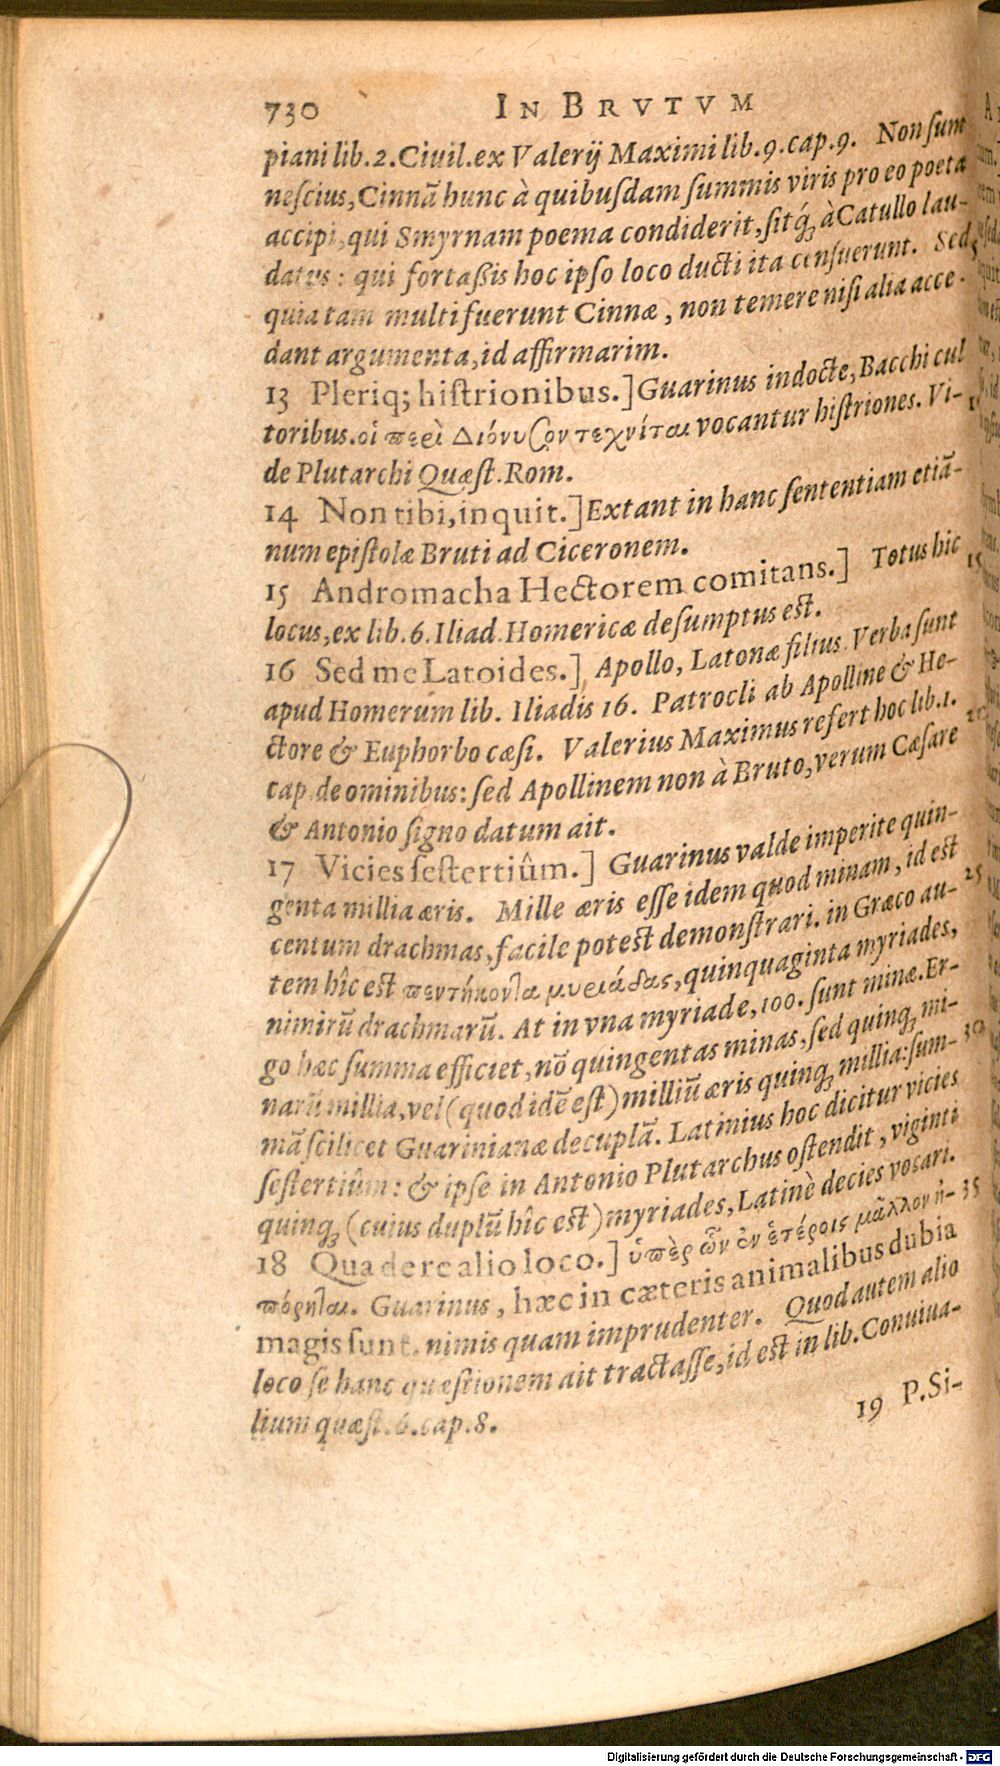 730 IN BRVTVM
piani lib.2.Ciuil.ex Valerij Maximi lib.9.cap.9. Non sum
nescius,Cinnā hunc à quibusdam summis viris pro eo poeta
accipi,qui Smyrnam poema condiderit,sitq́ꝫ à Catullo lau-
datus: qui fortaßis hoc ipso loco ducti ita censuerunt. Sed
quia tam multi fuerunt Cinnæ, non temere nisi alia acce-
dant argumenta,id affirmarim.
13 Pleriq; histrionibus.]Guarinus indocte,Bacchi cul
toribus.οἱ περὶ Διόνυσον τεχνίται vocantur histriones. Vi-
de Plutarchi Quæst.Rom.
14 Non tibi,inquit.]Extant in hanc sententiam etiā-
num epistolæ Bruti ad Ciceronem.
15 Andromacha Hectorem comitans.] Totus hic
locus,ex lib.6.Iliad.Homericæ desumptus est.
16 Sed me Latoides.] Apollo, Latonæ filius. Verba sunt
apud Homerum lib. Iliadis 16. Patrocli ab Apolline & He-
ctore & Euphorbo cæsi. Valerius Maximus refert hoc lib.1.
cap.de ominibus: sed Apollinem non à Bruto,verum Cæsare
& Antonio signo datum ait.
17 Vicies sestertiûm.] Guarinus valde imperite quin-
genta millia æris. Mille æris esse idem quod minam, id est
centum drachmas,facile potest demonstrari. in Græco au-
tem hîc est πεντήκοντα μυριάδας,quinquaginta myriades,
nimirū drachmarū. At in vna myriade,100. sunt minæ.Er-
go hæc summa efficiet,nō quingentas minas,sed quinqꝫ mi-
narū millia,vel(quod idē est)milliū æris quinqꝫ millia:sum-
mā scilicet Guarinianæ decuplā. Latinius hoc dicitur vicies
sestertiûm: & ipse in Antonio Plutarchus ostendit, viginti
quinqꝫ (cuius duplū hîc est)myriades,Latinè decies vocari.
18 Qua de re alio loco.] ὑπὲρ ὧν ἐν ἑτέροις μᾶλλον ἠ-
πόρηται. Guarinus, hæc in cæteris animalibus dubia
magis sunt. nimis quam imprudenter. Quod autem alio
loco se hanc quæstionem ait tractasse,id est in lib.Conuiua-
lium quæst.6.cap.8.
19 P.Si-
5
15
25
30
35
Digitalisierung gefördert durch die Deutsche Forschungsgemeinschaft - DFG